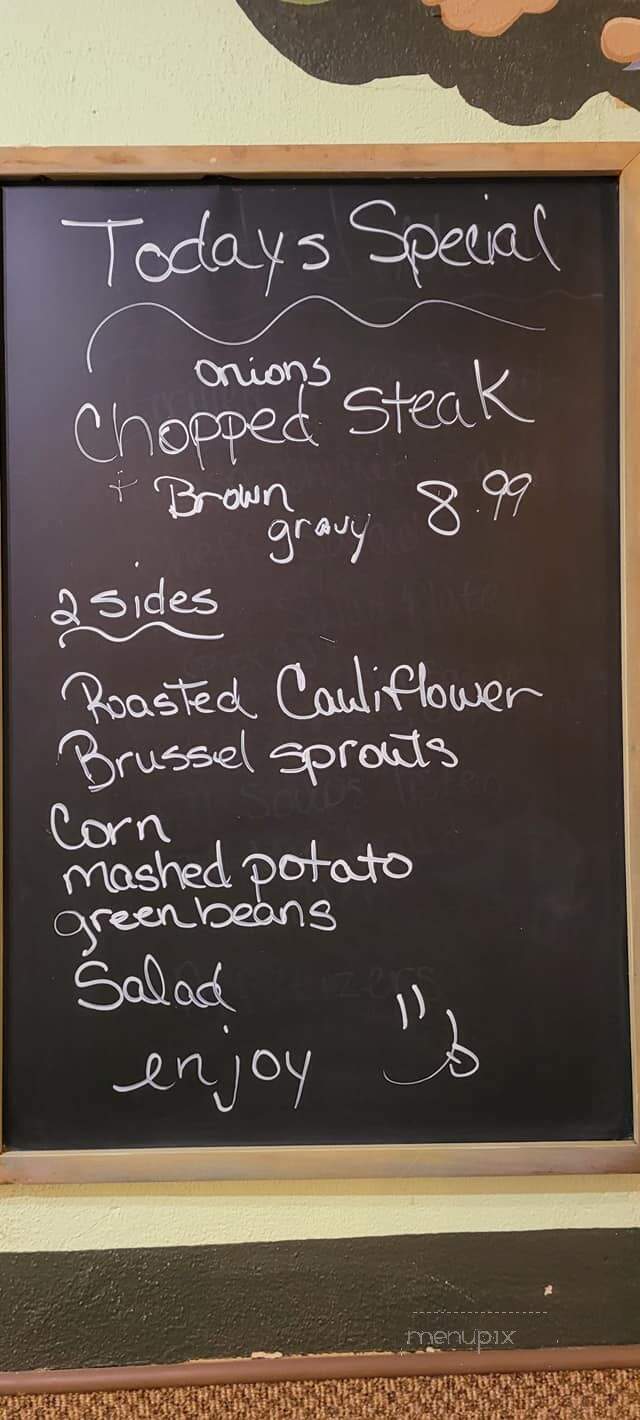 Todays Special
onions
Chopped Steak
+ Brown 8.99
gravy
2 sides
Roasted Cauliflower
Brussel sprouts
Corn
mashed potato
greenbeans
Salad
enjoy
menupix